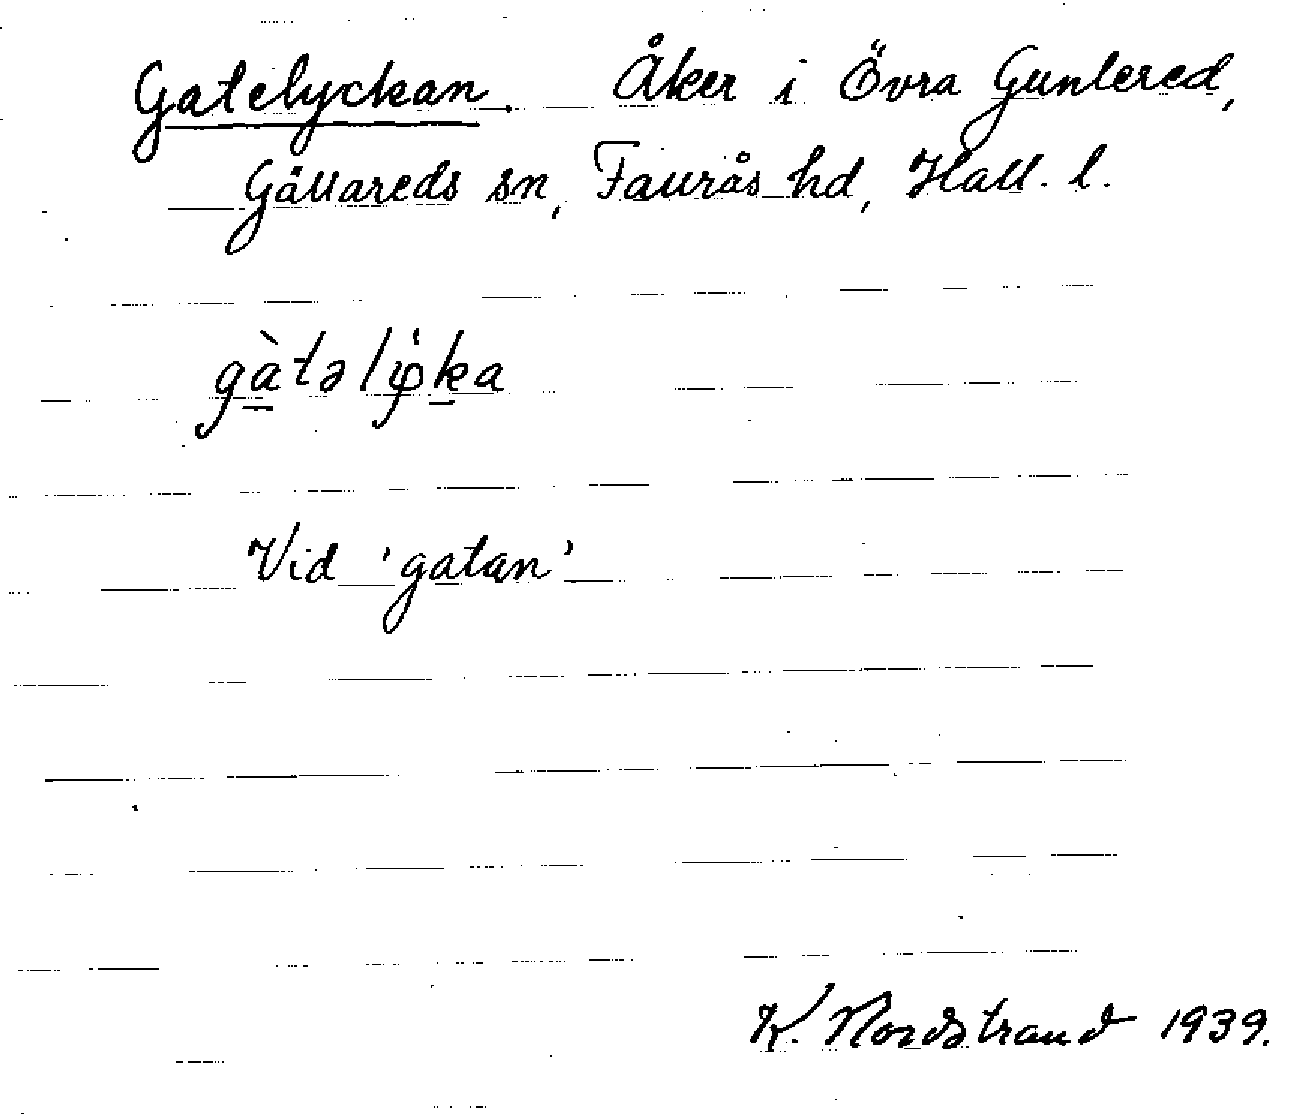 Gatelyckan. Åker i Övra Gunlered,
Gällareds sn, Faurås hd, Hall. l.
gàtəlφ̍ka
Vid 'gatan'
K. Nordstrand 1939.